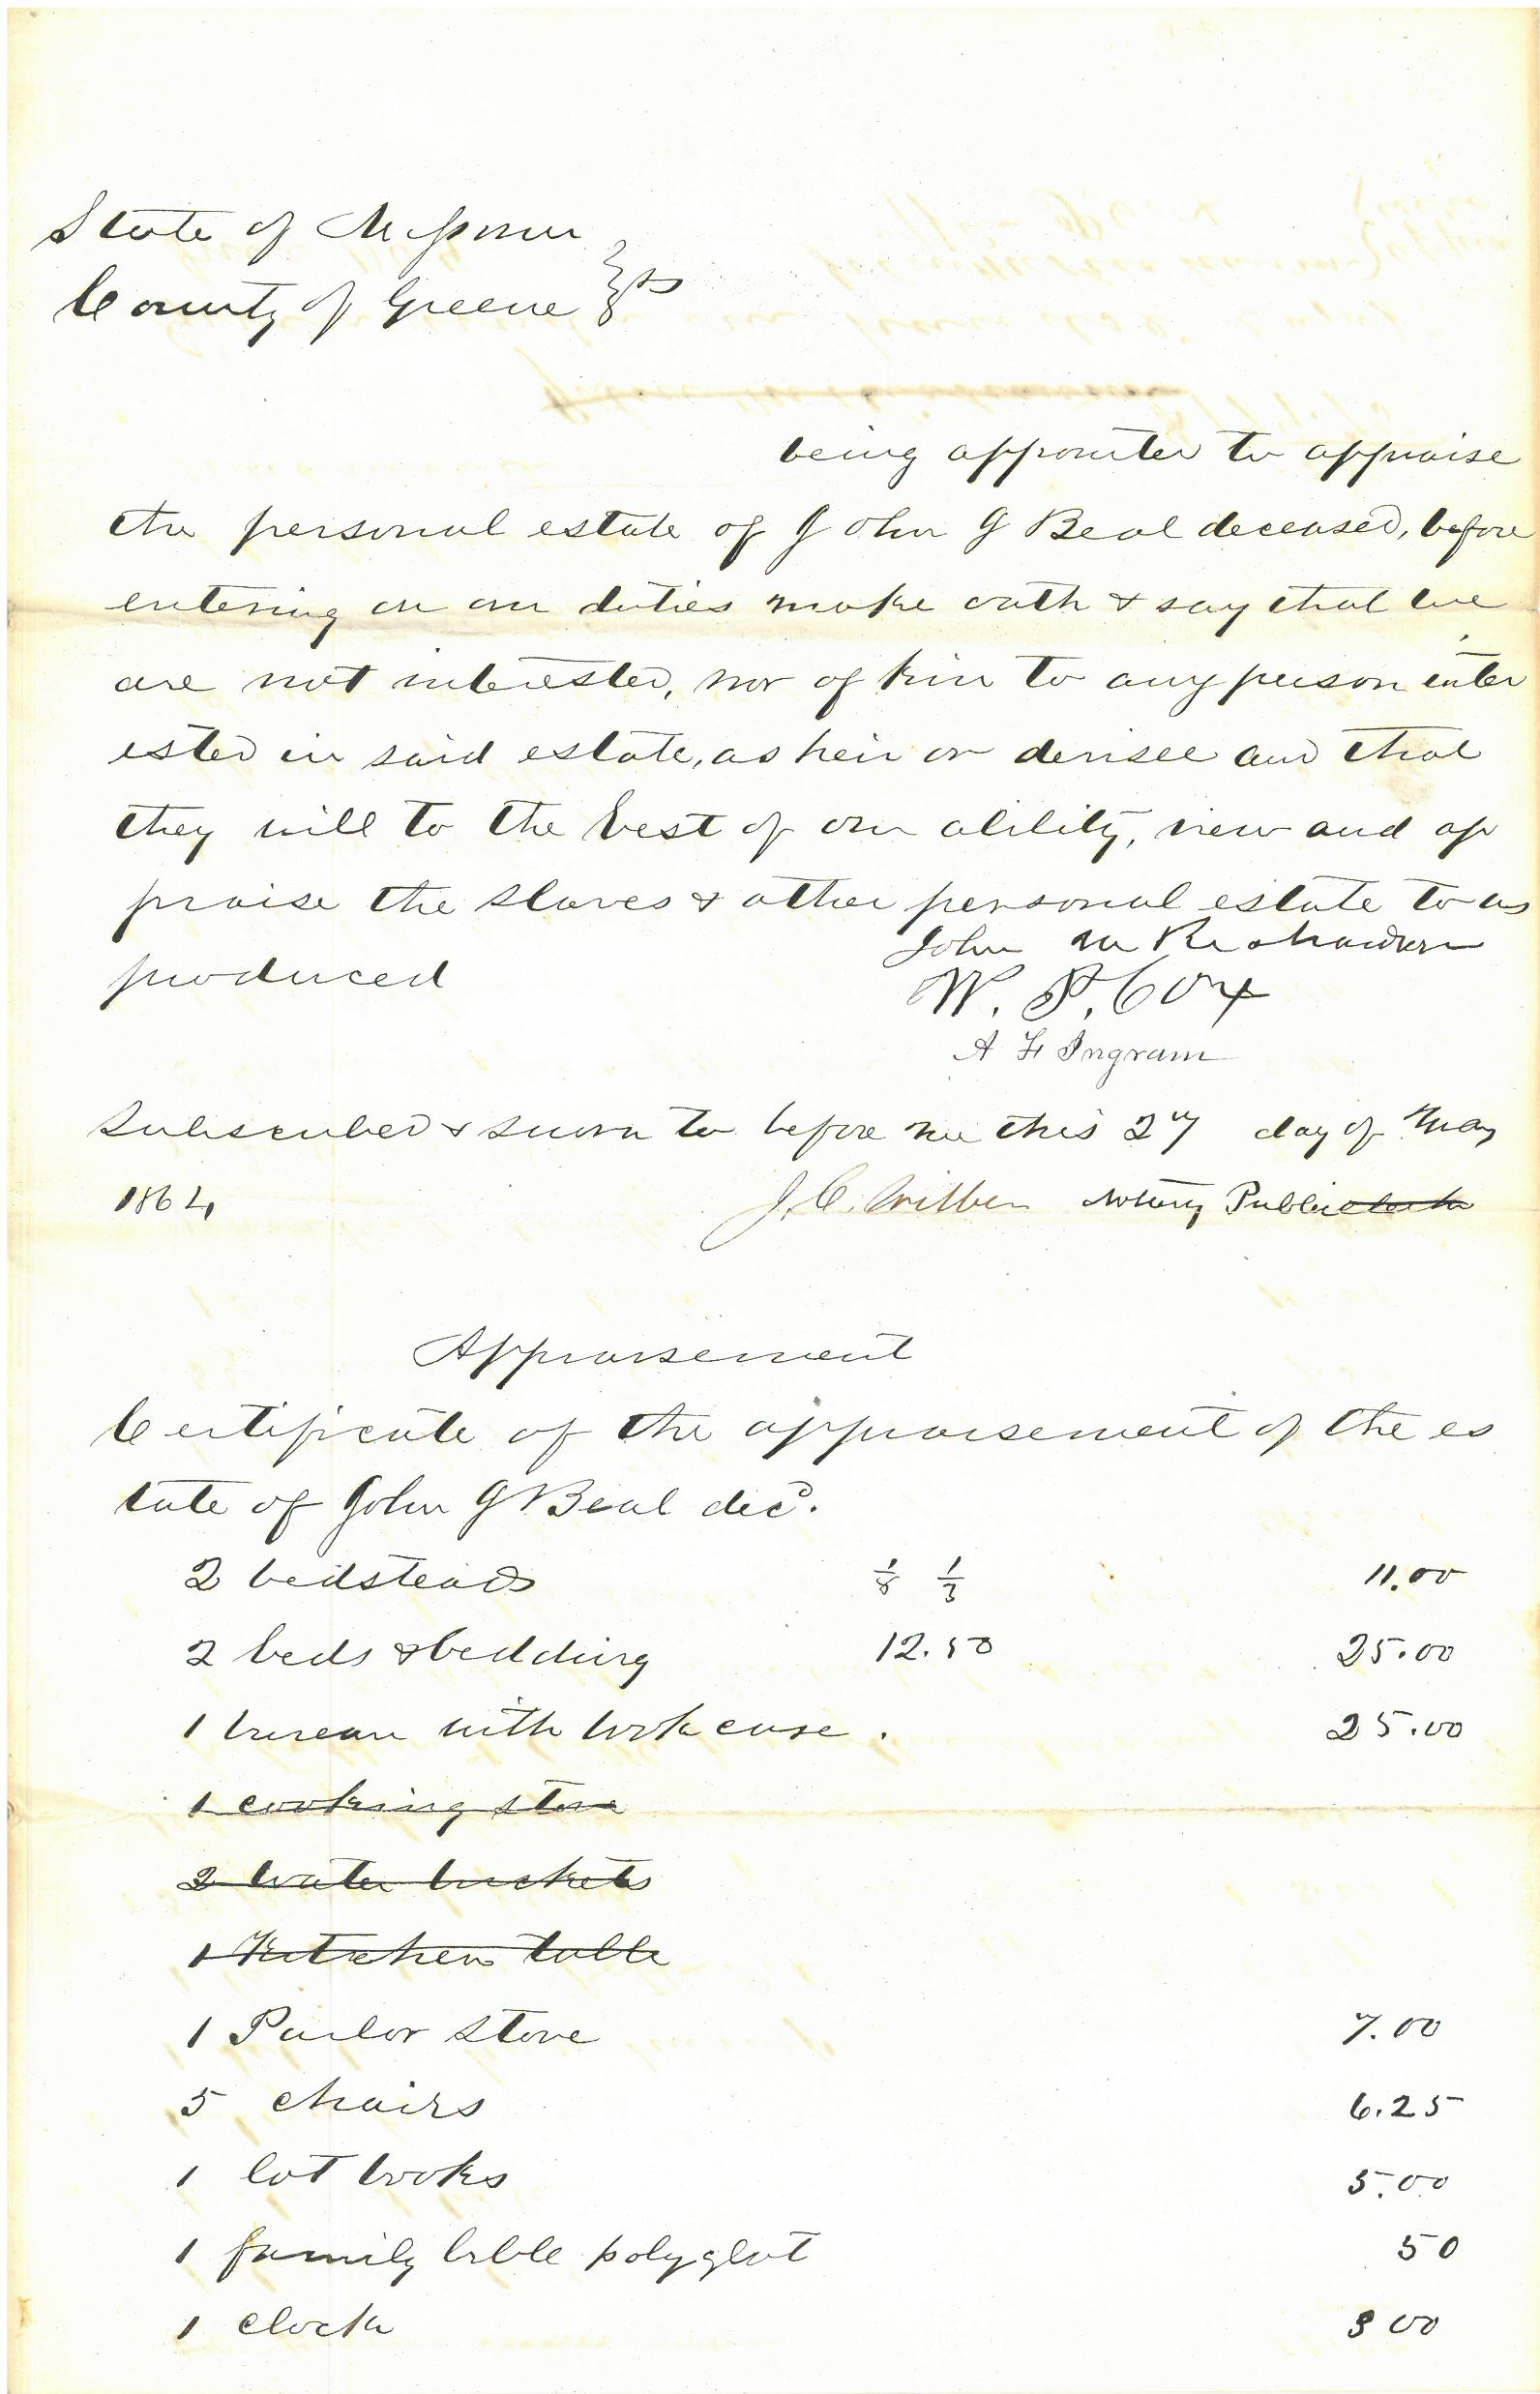 State of Missouri
County of Greene } ss
being appointed to appraise
the personal estate of John G Beal deceased, before
entering on our duties make oath & say that we
are not interested, nor of kin to any person inter
ested in said estate, as heir or devisee and that
they will to the best of our ability, view and ap
praise the slaves & other personal estate to us
produced
John M Richardson
W. P. Cox
A F Ingram
Subscribed & sworn to before me this 27 day of May
1864 J. C. Wilber Notary Public
Appraisement
Certificate of the appraisement of the es
tate of John G Beal decd.
2 bedsteads 1/8 1/3 11.00
2 beds & bedding 12.50 25.00
1 bureau with book case . 25.00
1 cooking stove
2 water buckets
1 Kitchen table
1 Parlor stove 7.00
5 chairs 6.25
1 lot books 5.00
1 family bible polyglot 50
1 clock 3 00